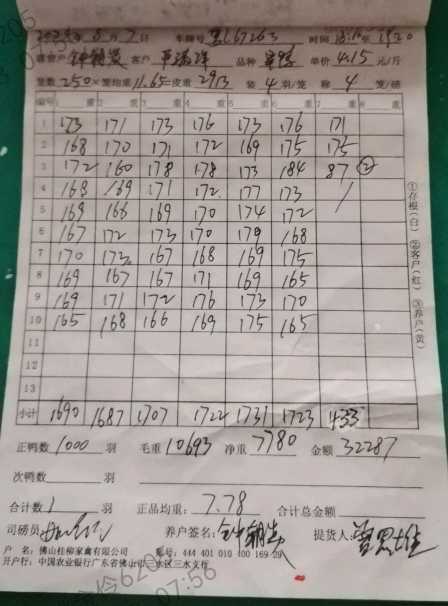 月7日 车牌号 67263 时间
客户 品种 单价4.15元/斤
笼数250×笼均重11.65=皮重2913 装4羽/笼 称4笼/磅
编号 1 重 2 重 3 重 4 重 5 重 6 重 7 重 8 重
1 173 171 173 176 173 176 171
2 168 170 171 172 169 175 175
3 172 160 178 178 173 184 87 ②
4 168 169 171 172 177 173 /
5 169 166 169 170 174 172
6 167 172 173 170 179 168
7 170 173 167 168 169 175
8 169 167 167 171 169 165
9 169 171 172 176 173 170
10 165 168 166 169 175 165
11
12
13
小计 1690 1687 1707 1722 1731 1723 433
①存根(白) ②客户(红) ③养户(黄)
正鸭数1000羽 毛重10693 净重7780 金额32287
次鸭数 羽
合计数1 羽 正品均重:7.78 合计总金额
司磅员 养户签名: 提货人:
户 名:佛山桂柳家禽有限公司 账号:444 401 010 400 169 29
开户行:中国农业银行广东省佛山市三水区三水支行
07:56